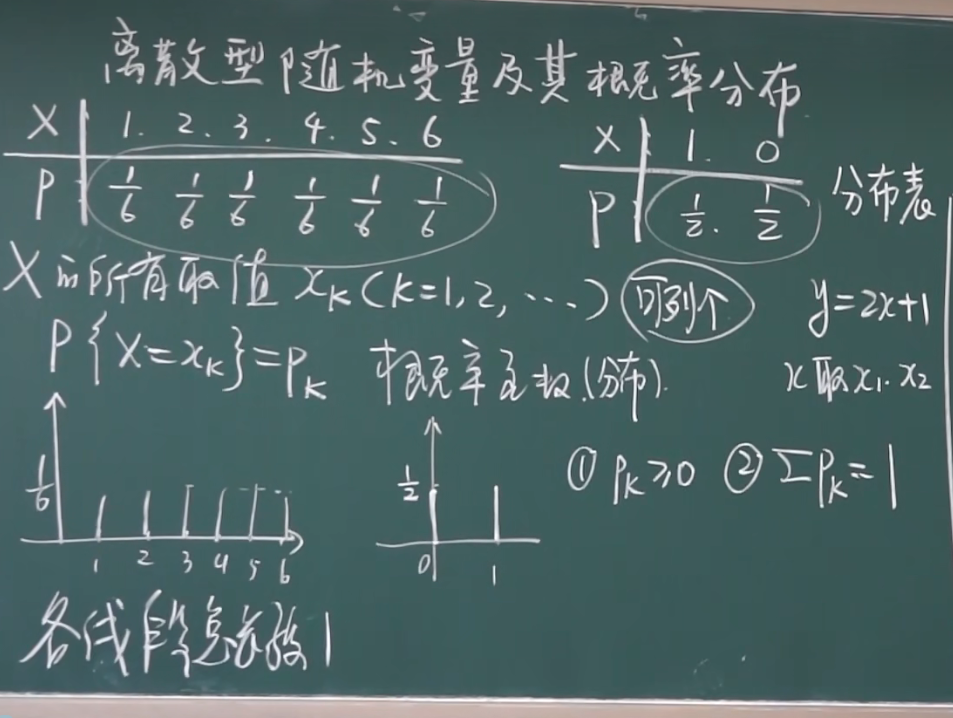 离散型随机变量及其概率分布
X 1. 2. 3. 4. 5. 6
P 1/6 1/6 1/6 1/6 1/6 1/6
X 1. 0
P 1/2. 1/2
分布表
X的所有取值 xₖ(k=1,2,⋯) 可列个
y=2x+1
P{X=xₖ}=pₖ 概率函数(分布).
x取x₁.x₂
1/6
1 2 3 4 5 6
1/2
0 1
① pₖ≥0 ② Σpₖ=1
各线段总长度1